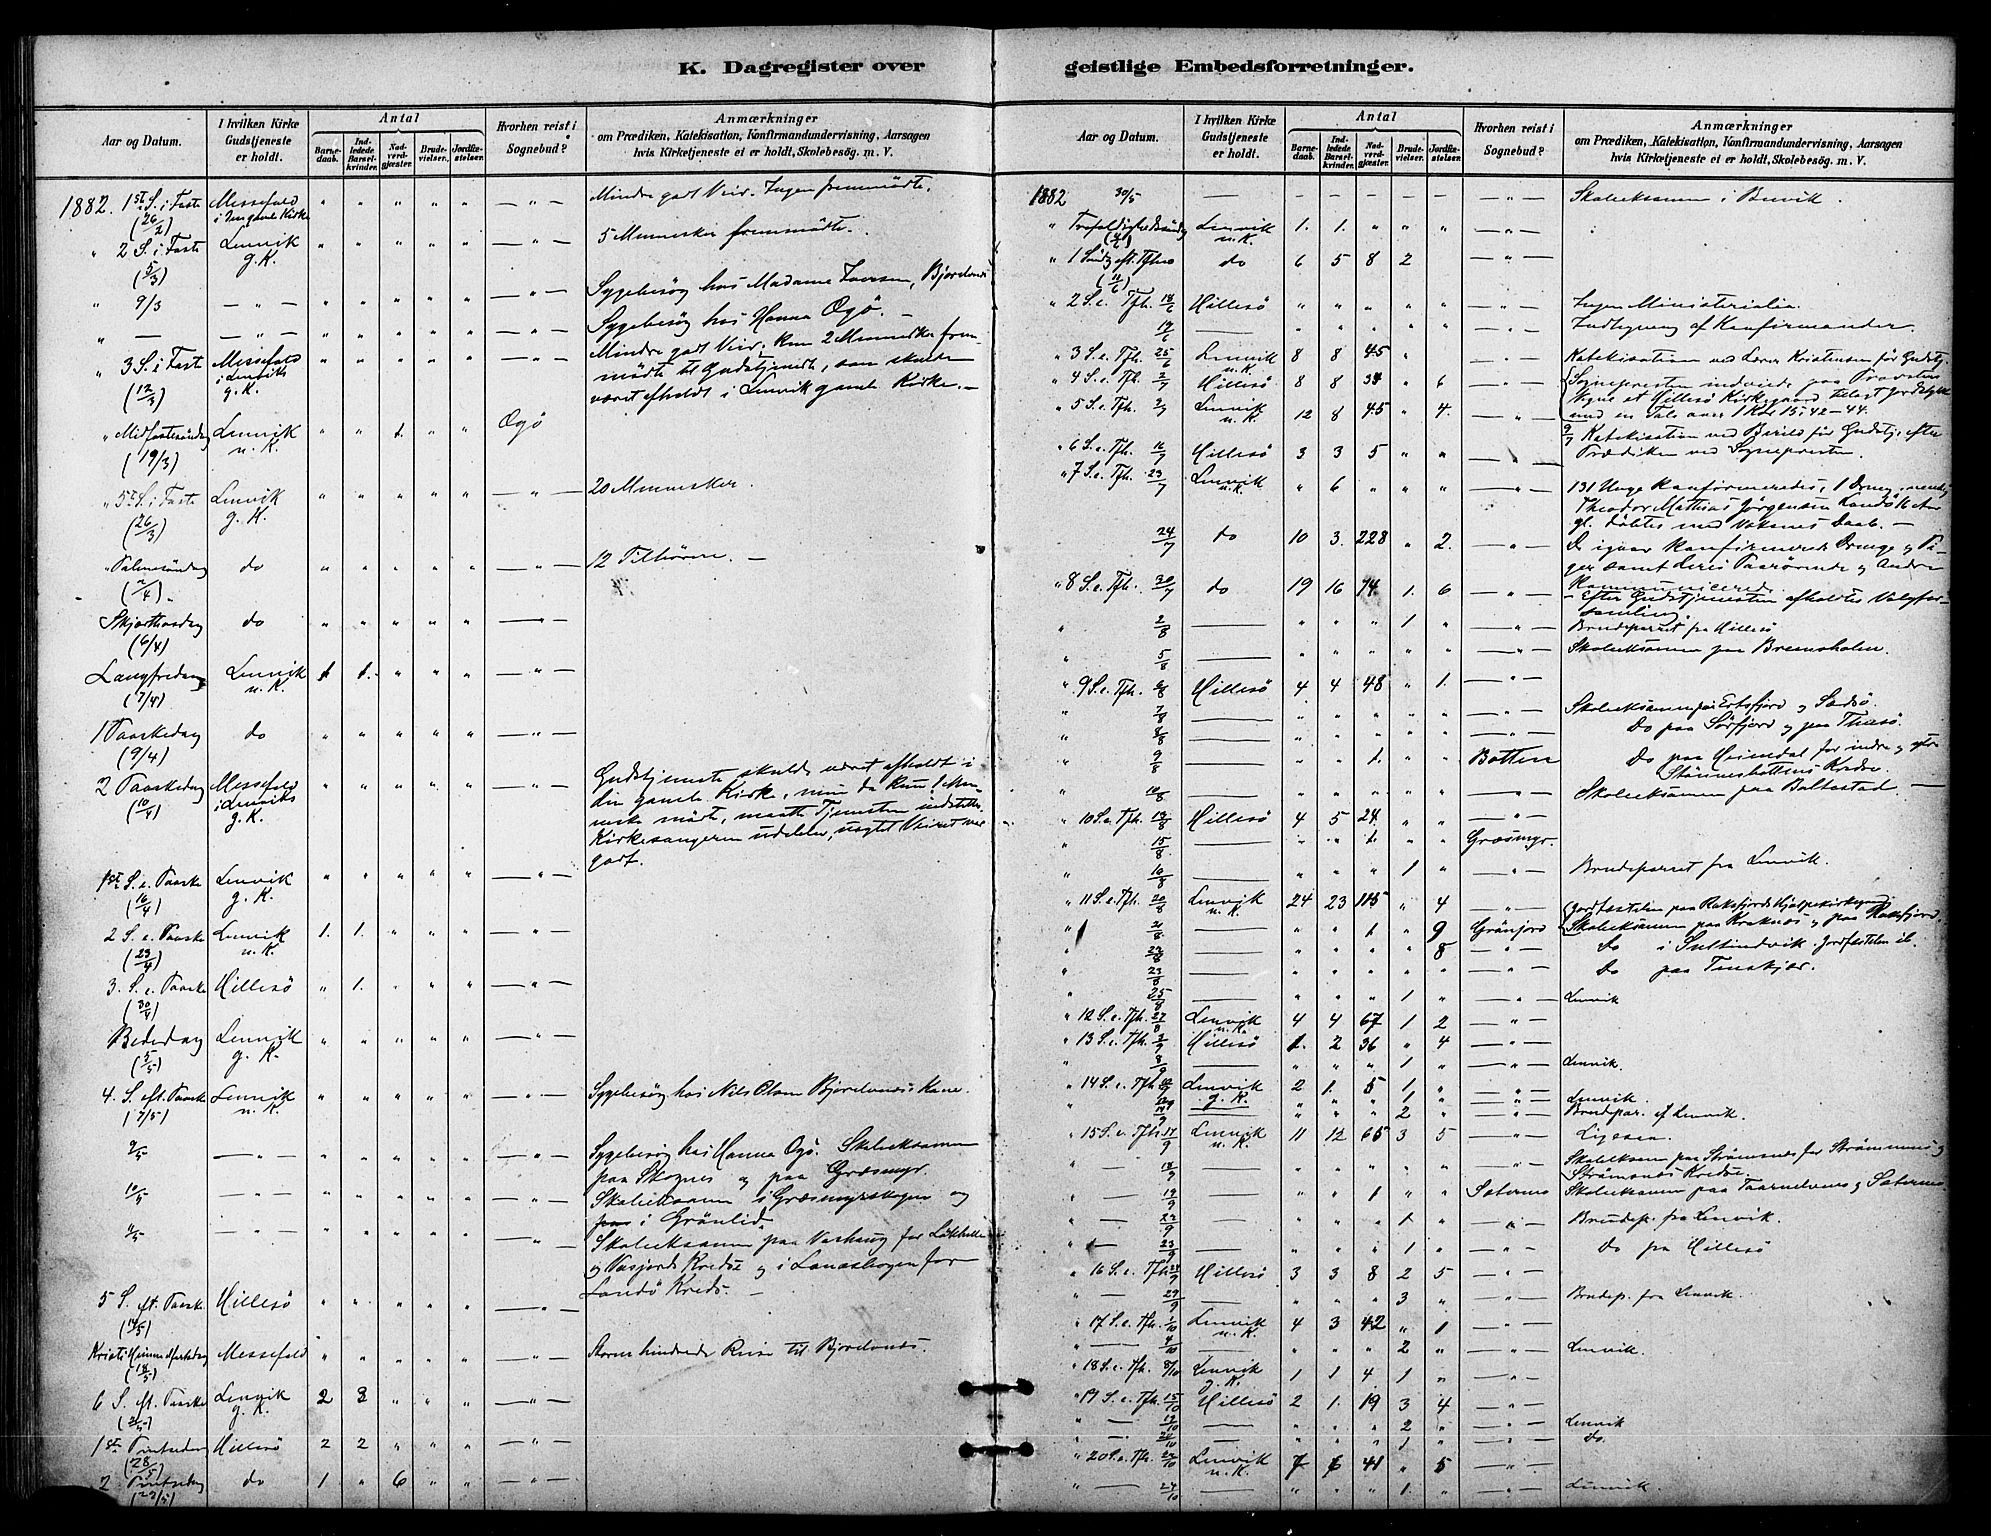 K. Dagregister over geistlige Embedsforretninger.
Aar og Datum. I hvilken Kirke Gudstjeneste er holdt. Antal Hvorhen reist i Sognebud? Anmærkninger
Barnedaab. Indledede Barselkvinder. Nadverdgjæster. Brudevielser. Jordfæstelser.
om Prædiken, Katekisation, Konfirmandundervisning, Aarsagen
hvis Kirketjeneste ei er holdt, Skolebesög. m. V.
1882. 1st S. i Faste (26/2) Messefald i den gamle Kirke " " " " " — " — Mindre godt Veir. Ingen fremmödte.
" 2 S. i Faste (5/3) Lenvik g. K. " " " " " — " — 5 Mennesker fremmödte.
" 9/3 — " — " " " " " — " — Sygebesög hos Madame
" — — " — " " " " " — " — Sygebesög hos Hanna Ogö. —
" 3 S. i Faste (12/3) Messefald i Lenviks g. K. " " " " " — " — Mindre godt Veir. Kun 2 Mennesker frem-
mödte til Gudstjeneste, som skulde
været afholdt i Lenvik gamle Kirke. —
" Midfastesöndag (19/3) Lenvik n. K. " " 1. " " Ogö
" 5te S. i Faste (26/3) Lenvik g. K. " " " " " — " — 20 Mennesker.
" Palmesöndag (2/4) do " " " " " — " — 12 Tilhörere. —
Skjærthorsdag (6/4) do " " " " " — " —
Langfredag (7/4) Lenvik n. K. 1 1. " " " — " —
1 Paaskedag (9/4) do " " " " " — " —
2 Paaskedag (10/4) Messefald i Lenviks g. K. " " " " " — " — Gudstjeneste skulde været afholdt i
den gamle Kirke, men da kun 1 Men-
neske mödte, maatte Tjenesten indstilles.
Kirkesangeren udeblev, uagtet Veiret var
godt.
1st S. e. Paaske (16/4) Lenvik g. K. " " " " " — " —
2 S. e. Paaske (23/4) Lenvik n. K. 1. 1. " " " — " —
3. S. e. Paaske (30/4) Hillesö " 1. " " " — " —
Bededag (5/5) Lenvik g. K. " " " " " — " —
4. S. eft. Paaske (7/5) Lenvik n. K. " " " " " — " — Sygebesög hos Nils Olsen Bjorelvnes's Kone.
9/5 — " — " " " " " — " — Sygebesög hos Hanna Ogö. Skoleeksamen
paa Skognes og paa Græsmyr.
10/5 — " — " " " " " — " — Skoleeksamen i Græsmyrskogen og
i Grönlid.
11/5 — " — " " " " " — " — Skoleeksamen paa Vashaug for
og Kreds og i for
Sandö Kreds. —
5 S. eft. Paaske (14/5) Hillesö " " " " " — " —
Kristi Himmelfartsdag (18/5) Messefald " " " " " — " — Storm hindrede Reise til Bjorelvnes.
6 S. eft. Paaske (21/5) Lenvik g. K. 2 3 " " " — " —
1st Pintsedag (28/5) Hillesö 2 2 " " " — " —
2 Pintsedag (29/5) do 1 " 6 " " — " —
Aar og Datum. I hvilken Kirke Gudstjeneste er holdt. Antal Hvorhen reist i Sognebud? Anmærkninger
Barnedaab. Indledede Barselkvinder. Nadverdgjæster. Brudevielser. Jordfæstelser.
om Prædiken, Katekisation, Konfirmandundervisning, Aarsagen
hvis Kirketjeneste ei er holdt, Skolebesög. m. V.
1882 30/5 — — — — — — — " — Skoleeksamen i Buvik.
" Trefoldighedssöndag (4/6) Lenvik n. K. 1. 1. " " " — " —
" 1 Söndg eft. Tfhed (11/6) do 6 5 8 2 — " —
" 2 S. e. Tfh. 18/6 Hillesö " " " " " — " — Ingen Ministerialia.
19/6 — " " " " " — " — Indtegning af Konfirmander.
" 3 S. e. Tfh. 25/6 Lenvik n. K. 8 8 45 " — " — Katekisation ved Lærer Kristensen för Gudstj.
" 4 S. e. Tfh. 2/7 Hillesö 8 8 34 " 6 — " — Sognepresten indviede paa Provstens
Vegne et Hillesö Kirkegaard tillagt Jordstykke
med en Tale over 1 Kor. 15, 42–44.
" 5 S. e. Tfh. 9/7 Lenvik n. K. 12 8 45 " 4. — " — 9/7 Katekisation ved för Gudstj. efter
Prædiken ved Sognepresten.
" 6 S. e. Tfh. 16/7 Hillesö 3 3 5 " " — " —
" 7 S. e. Tfh. 23/7 Lenvik n. K. " 6 " " " — " — 131 Unge konfirmeredes, 1 Dreng, nemlig
Theodor Mathias Jörgensen Sandö 16 Aar
gl. döbtes med Voksnes Daab. —
24/7 do 10 3. 228 " 2. — " — De igaar konfirmerede Drenge og Pi-
ger samt deres Paarörende og Andre
kommunicerede.
" 8 S. e. Tfh. 30/7 do 19 16 74 1. 6 — " — – Efter Gudstjenesten afholdtes Valgfor-
samling.
" 2/8 — " " " 1 " — " — Brudeparret fra Hillesö
" 5/8 — " " " " " — " — Skoleeksamen paa Bremsholen.
" 9 S. e. Tfh. 6/8 Hillesö 4 4 48 " 1. — " —
" 7/8 — " " " " " — " — Skoleeksamen paa Ersfjord og Sandsö.
" 8/8 — " " " " " — " — Do paa Sörfjord og paa Tussö.
" 9/8 — " " 1. " " Botten Do paa Meiendal for indre og ytre
Kredse.
" 10/8 — " " " " " — " — Skoleeksamen paa Baltestad. —
" 10 S. e. Tfh. 13/8 Hillesö 4 5 24 " " — " —
" 15/8 — " " 1. " " Græsmyr.
" 16/8 — " " " 1 " Brudeparret fra Lenvik.
" 11 S. e. Tfh. 20/8 Lenvik n. K. 24 23 115 " 4 — " — Jordfæstelse paa Roksfjords Hjælpekirkegaard
" 21/8 — " " 1 " 9 Grönfjord Skoleeksamen paa Kroknes og paa Roksfjord.
" 22/8 — " " " " 8 — " — Do i Sultindvik. Jordfæstelse ib.
" 23/8 — " " " " " — " — Do paa Tenskjær.
" 25/8 — " " " 1 " — " — Lenvik
" 12 S. e. Tfh. 27/8 Lenvik n. K. 4 4 67 1 2 — " —
" 13 S. e. Tfh. 3/9 Hillesö 1. 2 36 " 4 — " —
" 8/9 — " " " 1 " — " — Lenvik.
" 14 S. e. Tfh. 10/9 Lenvik g. K. 2 1. 5 1. " — " —
" 12/9 — " " " 1 " — " — Lenvik.
14/9 — " " " 2 " — " — Brudepar. af Lenvik.
" 15 S. e. Tfh. 17/9 Lenvik n. K. 11 12 65 3 5 — " — Ligesaa.
" — 18/9 — " " " " " — " — Skoleeksam. paa Strömsnes for Strömmens og
Strömsnes Kredse
" — 19/9 — " " 1 " " Sæternes Skoleeksamen paa Taarnelvnes og Sæternes.
" — 22/9 — " " " 1 " — " — Brudep. fra Lenvik.
" — 23/9 — " " " 1 " — " — do fra Hillesö
" 16 S. e. Tfh. 24/9 Hillesö 3 3 8 2 5 — " —
" — 29/9 — " " " 3 " — " — Brudep. fra Lenvik.
" 17 S. e. Tfh. 1/10 Lenvik n. K. 4 3 42 " 1 — " —
" — 4/10 — " " " 2 " — " — Lenvik.
" 18 S. e. Tfh. 8/10 Lenvik g. K. 1 1 4 1 " — " —
" 19 S. e. Tfh. 15/10 Hillesö 2 1. 19 3 4 — " —
" — 17/10 — " " " 2 " — " — Lenvik
" — 20/10 — " " " 1 " — " — do.
" 20 S. e. Tfh. 22/10 Lenvik n. K. 7 6 41 " 5 — " —
" — 24/10 — " " " 1. " — " — Lenvik.